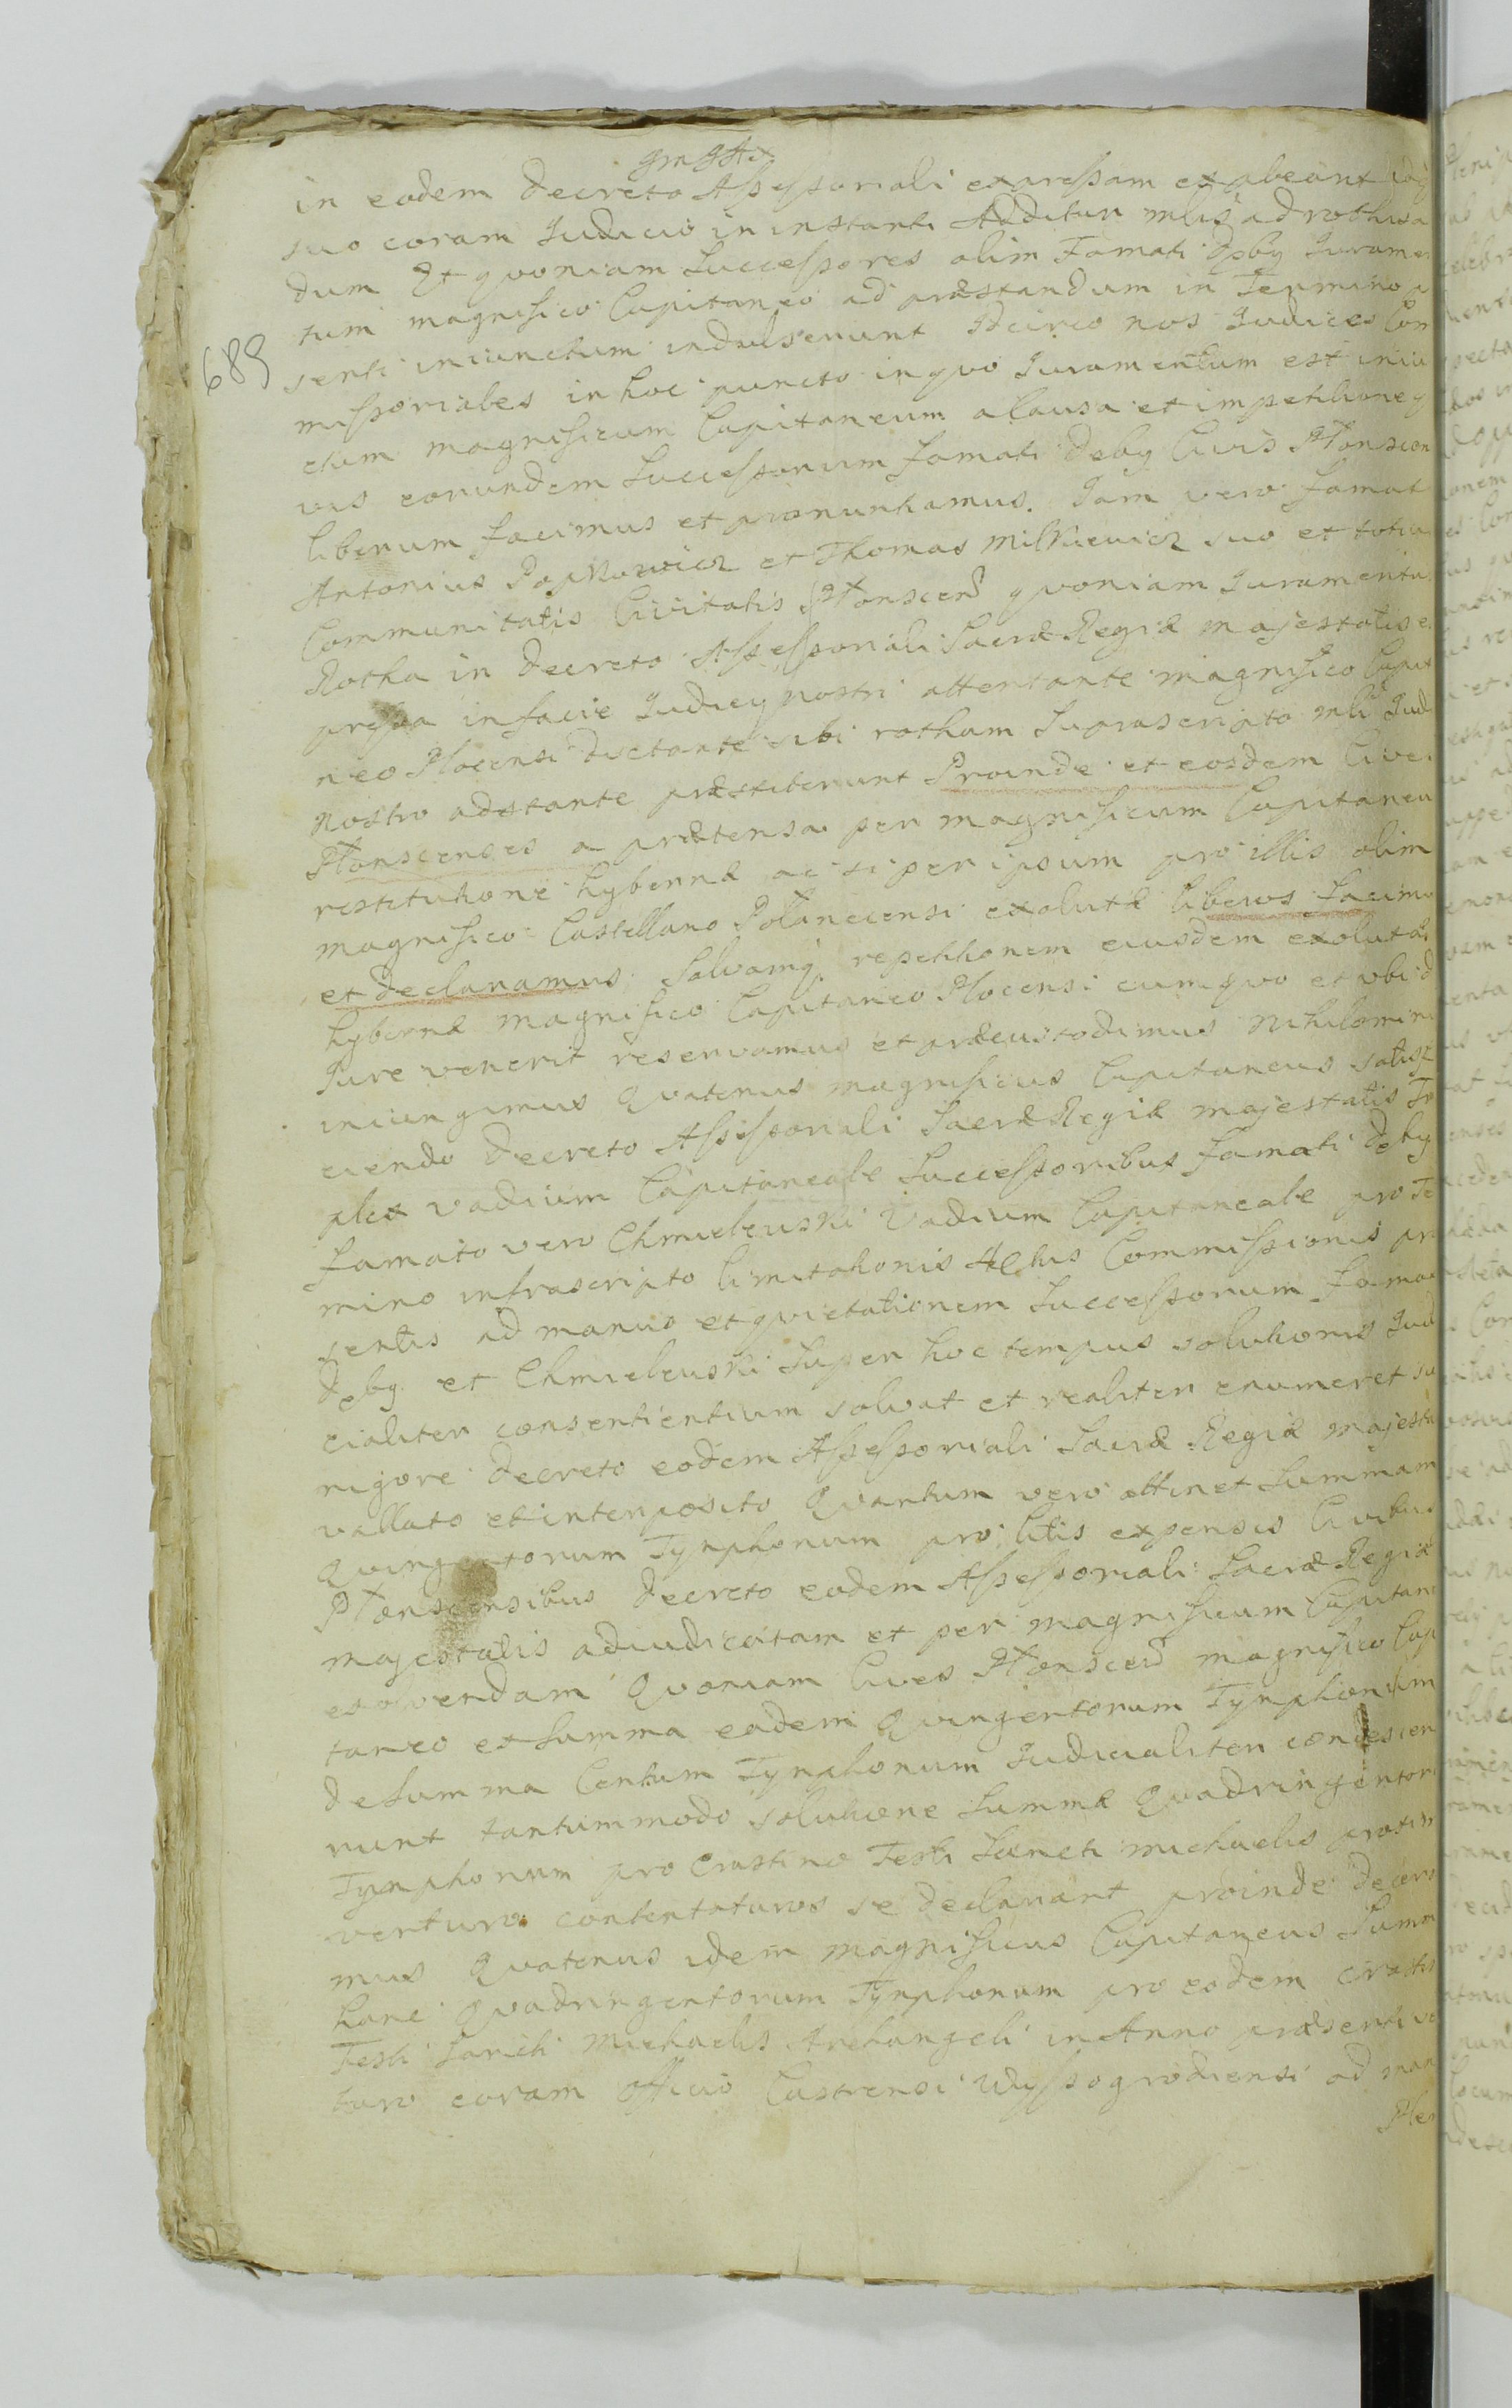 in eodem Decreto Assessoriali expressam exabeant
suo coram Judicio in instanti Additur mlis ad rothisa
dum Et quoniam Successores olim Famati Deby Juramen
tum magnifico Capitaneo ad præstandum in Termino
senti iniunctum indulserunt Idcirco nos Judices Com
missoriales in hoc puncto in quo Juramentum est iniu
ctum magnificum Capitaneum a Causa et impetitione
vis eorundem Successorum famati Deby Civis Płonscen
liberum facimus et pronuntiamus. Jam vero famat
Antonius Popkowicz et Thomas Milkiewicz suo et totiu
Communitatis Civitatis Płonscen quoniam Juramentu
Rotha in Decreto Assessoriali Sacræ Regiæ majestatis e
pressa in facie Judicy nostri attentante magnifico Capit
neo Plocensi dictante sibi rotham Suprascripto mli Judi
Nostro adstante præstiterunt Proinde et eosdem Cives
Płonscenses a prætensa per magnificum Capitaneu
restitutione hybernæ ac si per ipsum pro illis olim
magnifico Castellano Polanecensi exolutæ liberos facimu
et declaramus Salvamq repetitionem eiusdem exolutæ
hybernæ magnifico Capitaneo Plocensi cum quo et ubi d
Jure venerit reservamus et præcustodimus Nihilomin
iniungimus Quatenus magnificus Capitaneus satisf
ciendo Decreto Assessoriali Sacræ Regiæ majestatis Tri
plex vadium Capitaneale Successoribus famati Deby
famato vero Chmielewski Vadium Capitaneale pro Te
mino infrascripto limitationis Actus Commissionis præ
sentis ad manus et quietationem Successorum famat
Deby et Chmielewski Super hoc tempus solutionis Judi
cialiter consentientium solvat et realiter enumeret su
rigore Decreto eodem Assessoriali Sacræ Regiæ majesta
vallato et interposito Quantum vero attinet Summam
Quingentorum Tynphonum pro litis expensis Civibus
Płonscensibus Decreto eodem Assessoriali Sacræ Regiæ
majestatis adiudicatam et per magnificum Capitane
exolvendam Quoniam Cives Płonscen magnifico Capi
taneo ex Summa eadem Quingentorum Tynphonum
de Summa Centum Tynphonum Judicialiter condescen
runt tantummodo solutione Summæ Quadringentoru
Tynphonum pro Crastino Festi Sancti Michaelis proxim
venturo contentaturos se declarant proinde decerni
mus Quatenus idem magnificus Capitaneus Summ
hanc Quadringentorum Tynphonum pro eodem crastin
Festi Sancti Michaelis Archangeli in Anno præsenti ve
turo coram Officio Castrensi Wyssogrodiensi ad man
Ple
689